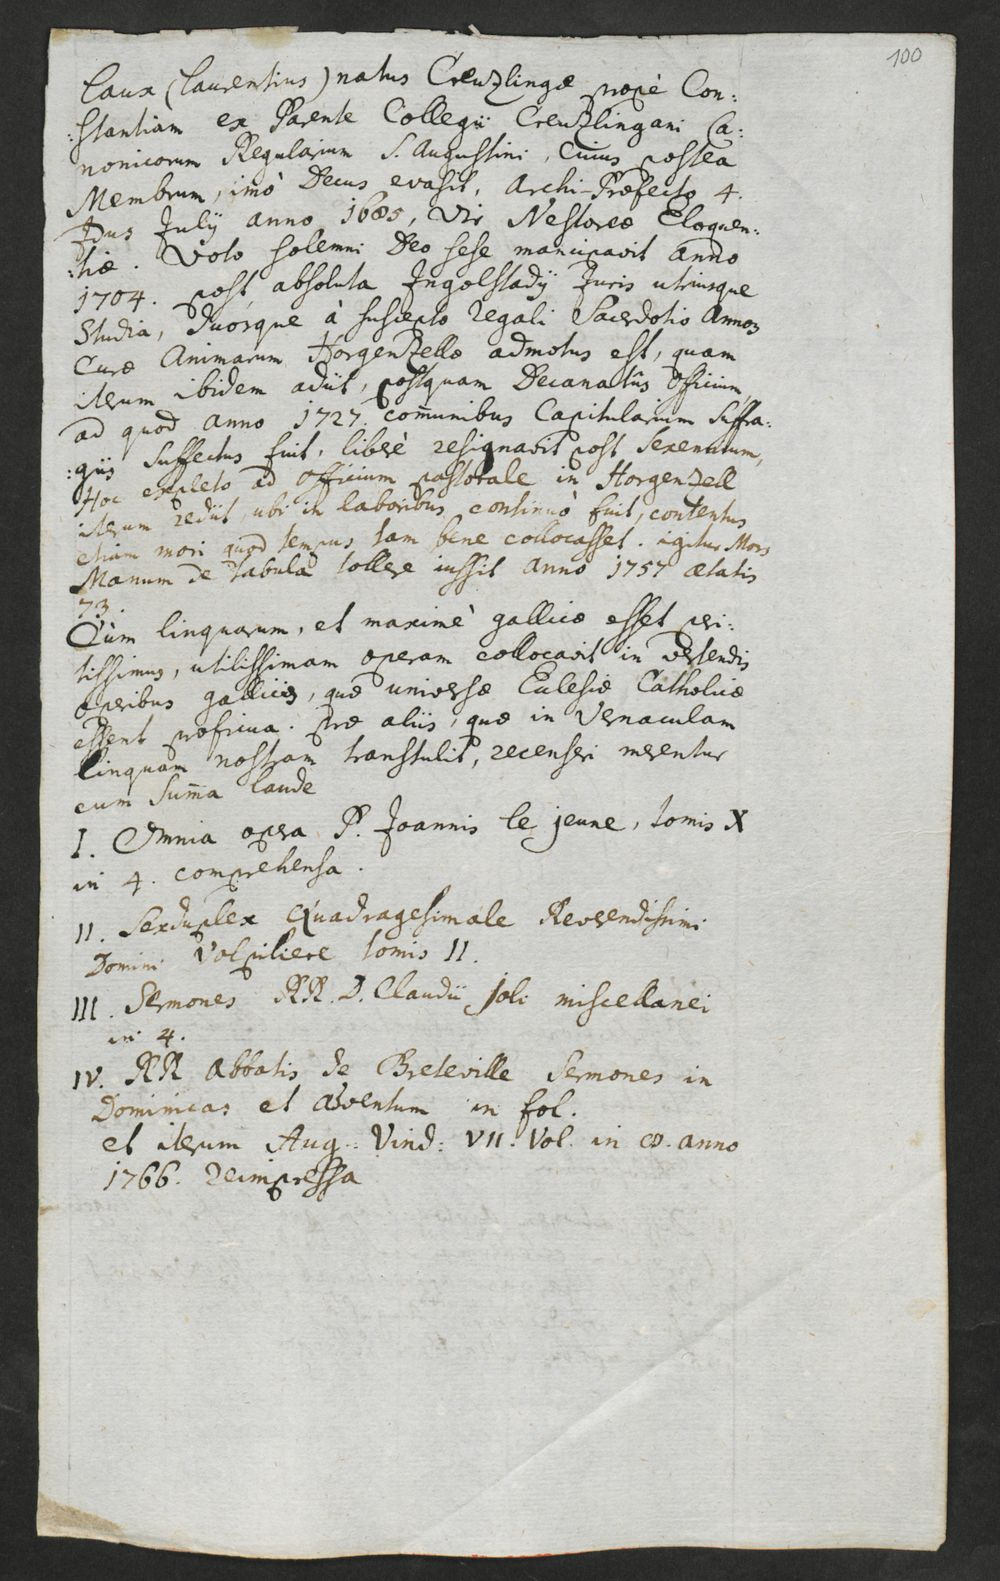 100
Laux (Laurentius) natus Creuzlingæ propè Con:
:stantiam ex Parente Collegii Creuzlingani Ca:
nonicorum Regularium S. Augustini, cuius postea
Membrum, imò Decus evasit, Archi-Præfecto 4.
Idus Julij anno 1685, Vir Nestoreæ Eloquen:
:tiæ. Voto solemni Deo sese mancipavit anno
1704. post absoluta Ingolstadij Juris utriusque
Studia, Duosque à suscepto regali Sacerdotio Annos
Curæ Animarum Horgenzellæ admotus est, quam
iterum ibidem adiit, postquam Decanatûs Officium,
ad quod anno 1727. com̄unibus Capitularium Suffra:
:giis suffectus fuit, liberè resignavit post sexennium,
Hoc expleto ad officium pastorale in Horgenzell
iterum rediit, ubi in laboribus continuò fuit, contentus
etiam mori quod tempus tam bene collocasset. igitur Mors
Manum de tabulâ tollere iussit anno 1757 ætatis
73.
Cùm linguarum, et maximè gallicæ esset peri:
tissimus, utilissimam operam collocavit in vertendis
operibus gallicis, quæ universæ Eclesiæ Catholicæ
essent proficua. præ aliis, quæ in Vernaculam
linguam nostram transtulit, recenseri merentur
cum sum̄a laude
I. Omnia opera P. Joannis le jeune, tomis X
in 4. comprehensa.
II. Sexduplex Quadragesimale Reverendissimi
Domini Volpiliere tomis II.
III. Sermones RR. D. Claudii Joli miscellanei
in 4.
IV. RR Abbatis de Breteville Sermones in
Dominicas et adventum in fol.
et iterum Aug: Vind: VII. Vol. in 8. anno
1766. reimpressa